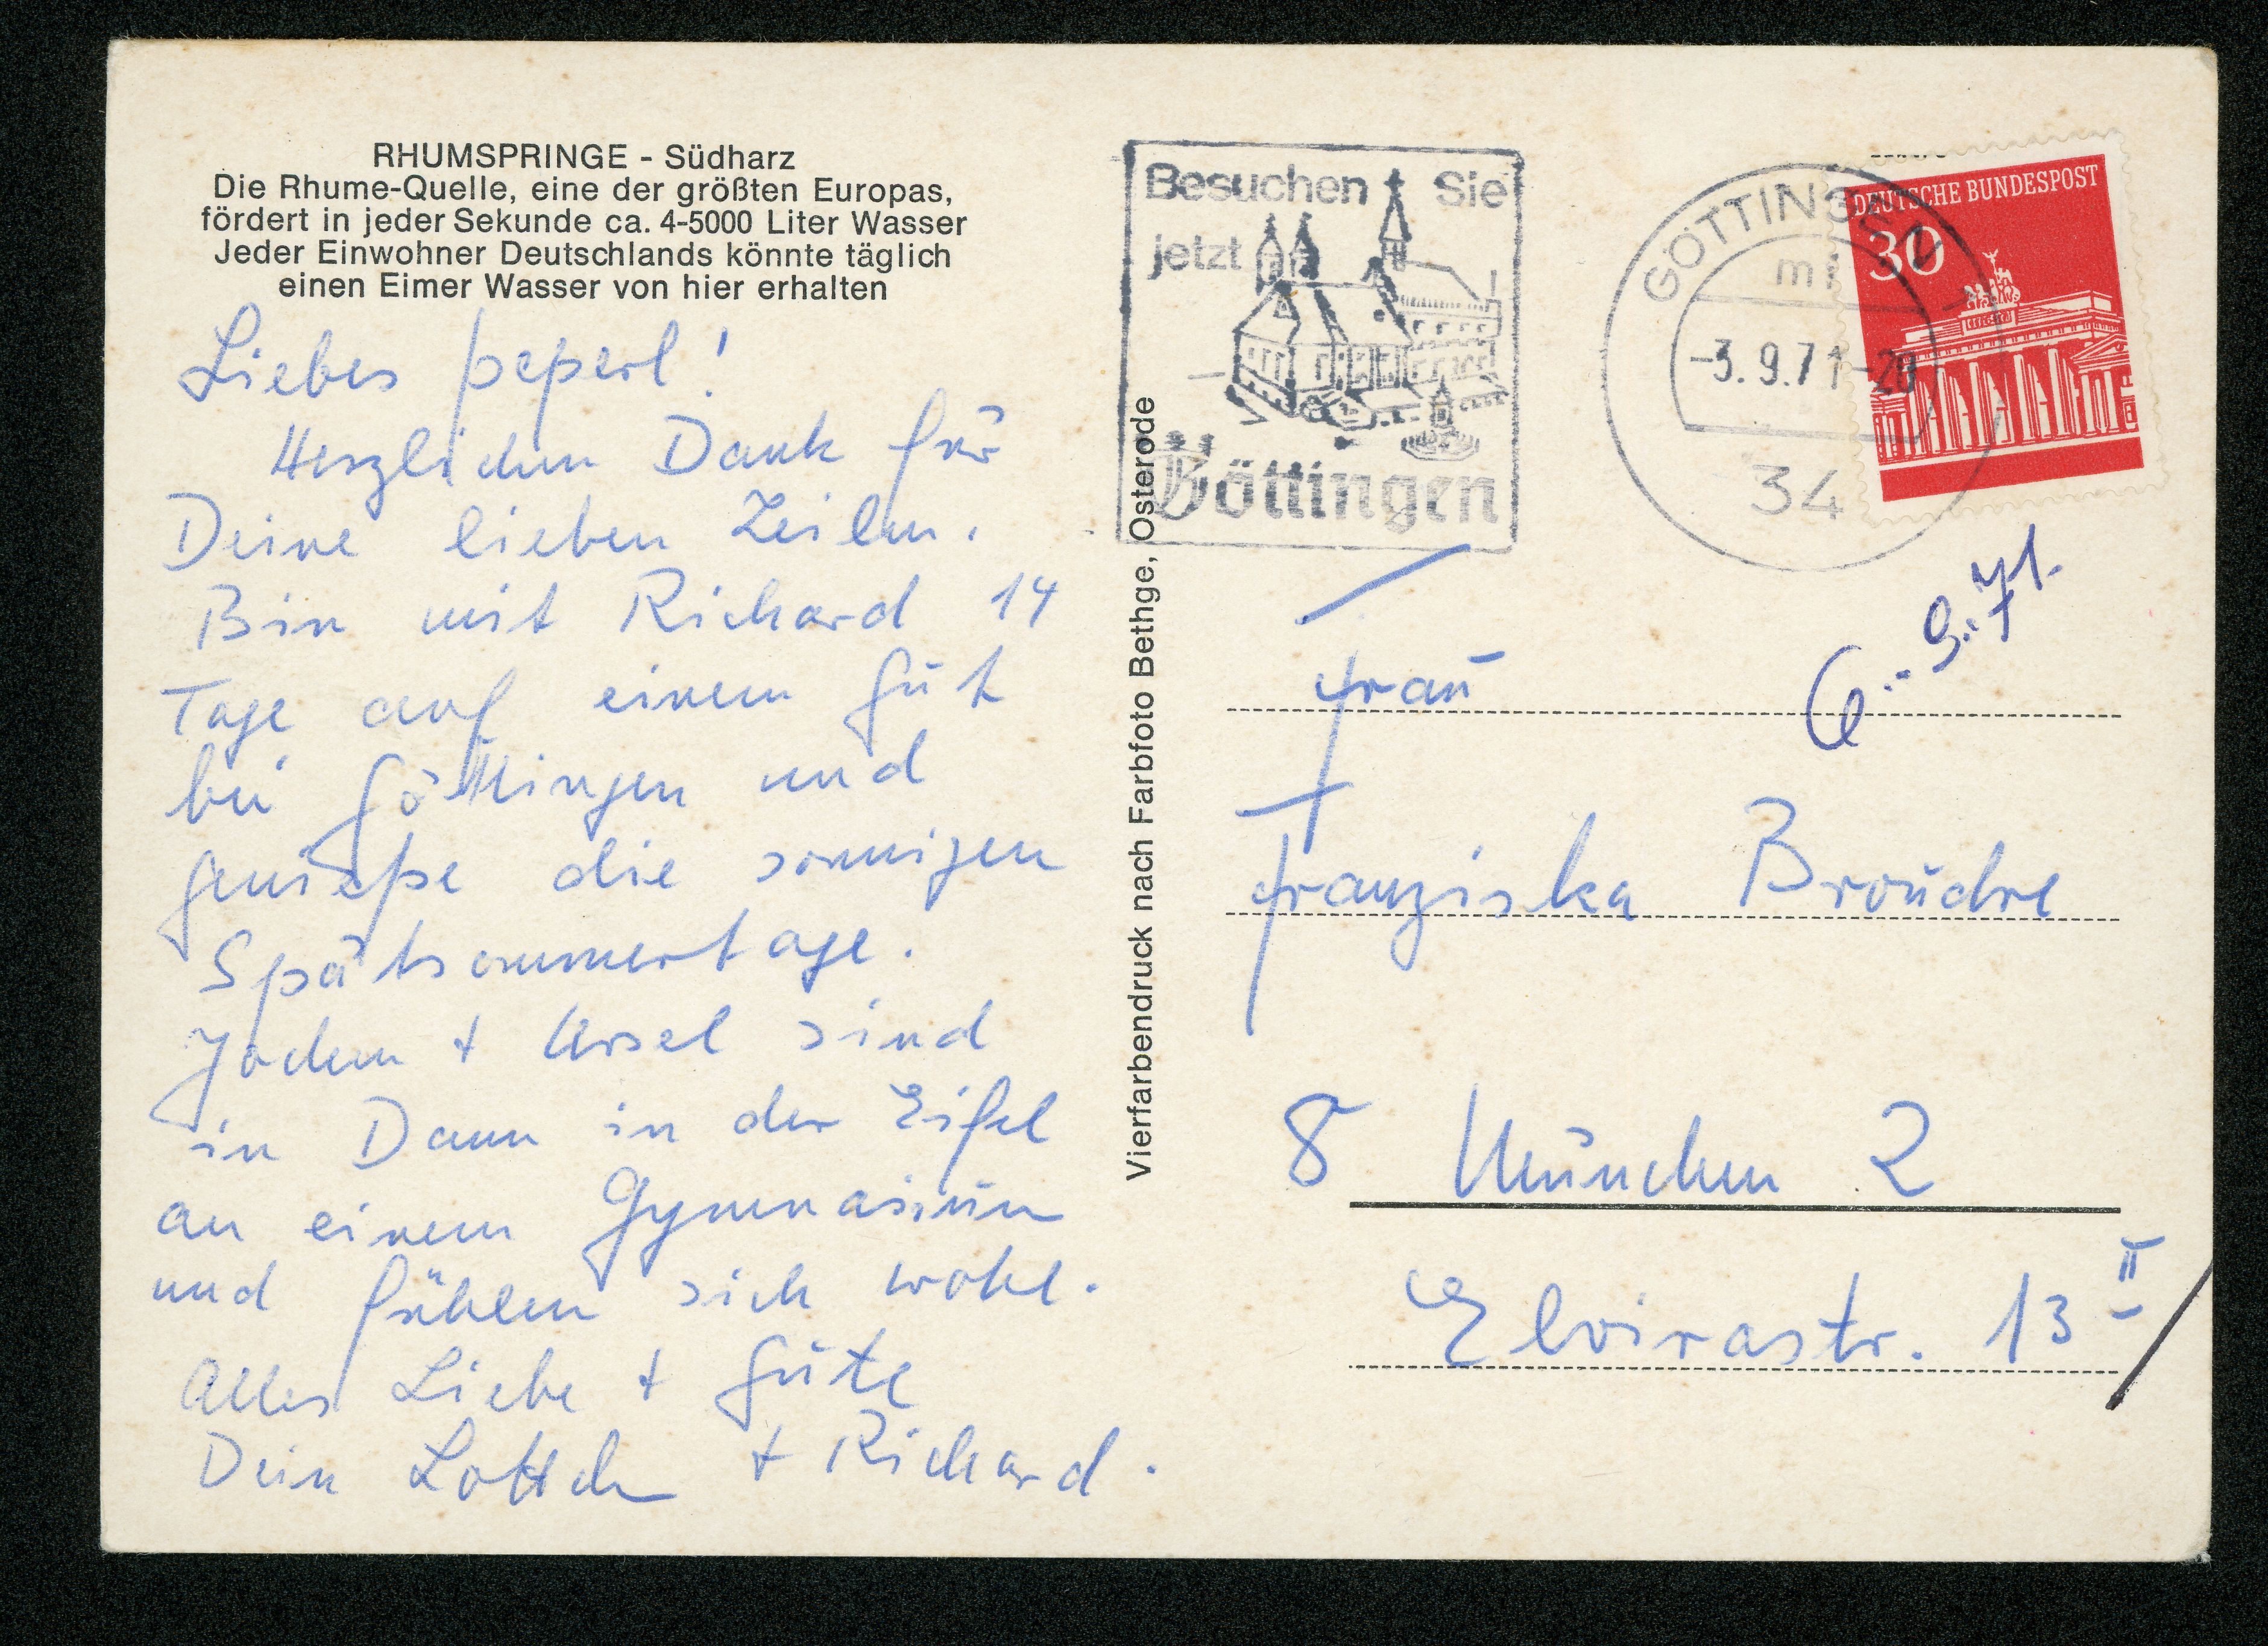 RHUMSPRINGE - Südharz
Die Rhume-Quelle, eine der größten Europas,
fördert in jeder Sekunde ca. 4-5000 Liter Wasser
Jeder Einwohner Deutschlands könnte täglich
einen Eimer Wasser von hier erhalten
Liebes peperl!
Herzlichen Dank für
Deine lieben Zeilen.
Bin mit Richard 14
Tage auf einem Gut
bei Göttingen und
genieße die sonnigen
Spätsommertage.
Jochen + Ursel sind
in Daun in der Eifel
an einem Gymnasium
und fühlen sich wohl.
Alles Liebe + Gute
Dein Lottch + Richard.
Vierfarbendruck nach Farbfoto Bethge, Osterode
Besuchen Sie
jetzt
Göttingen
GÖTTINGEN 1
mi
-3.9.71-20
34
DEUTSCHE BUNDESPOST
30
6..9.71.
Frau
Franziska
8 München 2
Elvirastr. 13 II